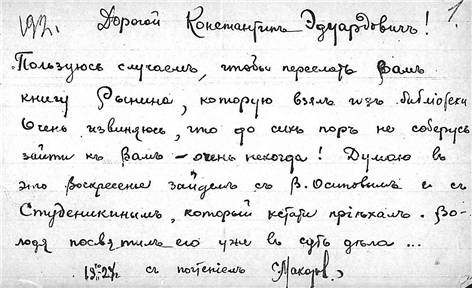 Дорогой Константинъ Эдуардовичъ! 1.
Пользуюсь случаемъ, чтобы переслать Вамъ
книгу Рынина, которую взялъ изъ библіотеки
Очень извиняюсь, что до сихъ поръ не соберусь
зайти къ Вамъ – очень некогда! Думаю въ
это Воскресенье зайдемъ съ В. Осиповымъ и съ
Студеникинымъ, который кстати пріѣхалъ. Во-
лодя посвятилъ его уже въ суть дѣла ...
съ почтеніемъ